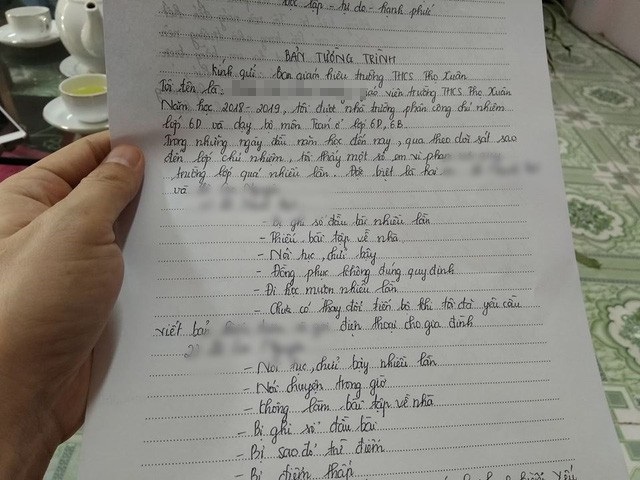 Độc lập - tự do - hạnh phúc
BẢN TƯỜNG TRÌNH
Kính gửi: Ban giám hiệu trường THCS Thọ Xuân
Tôi tên là: giáo viên trường THCS Thọ Xuân
Năm học 2018 - 2019, tôi được nhà trường phân công chủ nhiệm
lớp 6D và dạy bộ môn Toán ở lớp 6D, 6B.
Trong những ngày đầu năm học đến nay, qua theo dõi sát sao
đến lớp chủ nhiệm, tôi thấy một số em vi phạ
trường lớp quá nhiều lần. Đặc biệt là hai
và
- Bị ghi sổ đầu bài nhiều lần
- Thiếu bài tập về nhà
- Nói tục, chửi bậy
- Đồng phục không đúng quy định
- Đi học muộn nhiều lần
- Chưa có thay đổi tiến bộ khi tôi đã yêu cầu
viết bản điện thoại cho gia đình
2)
- Nói tục, chửi bậy nhiều lần
- Nói chuyện trong giờ
- không làm bài tập về nhà
- Bị ghi sổ đầu bài
- Bị sao đỏ trừ điểm
- Bị điểm thấp